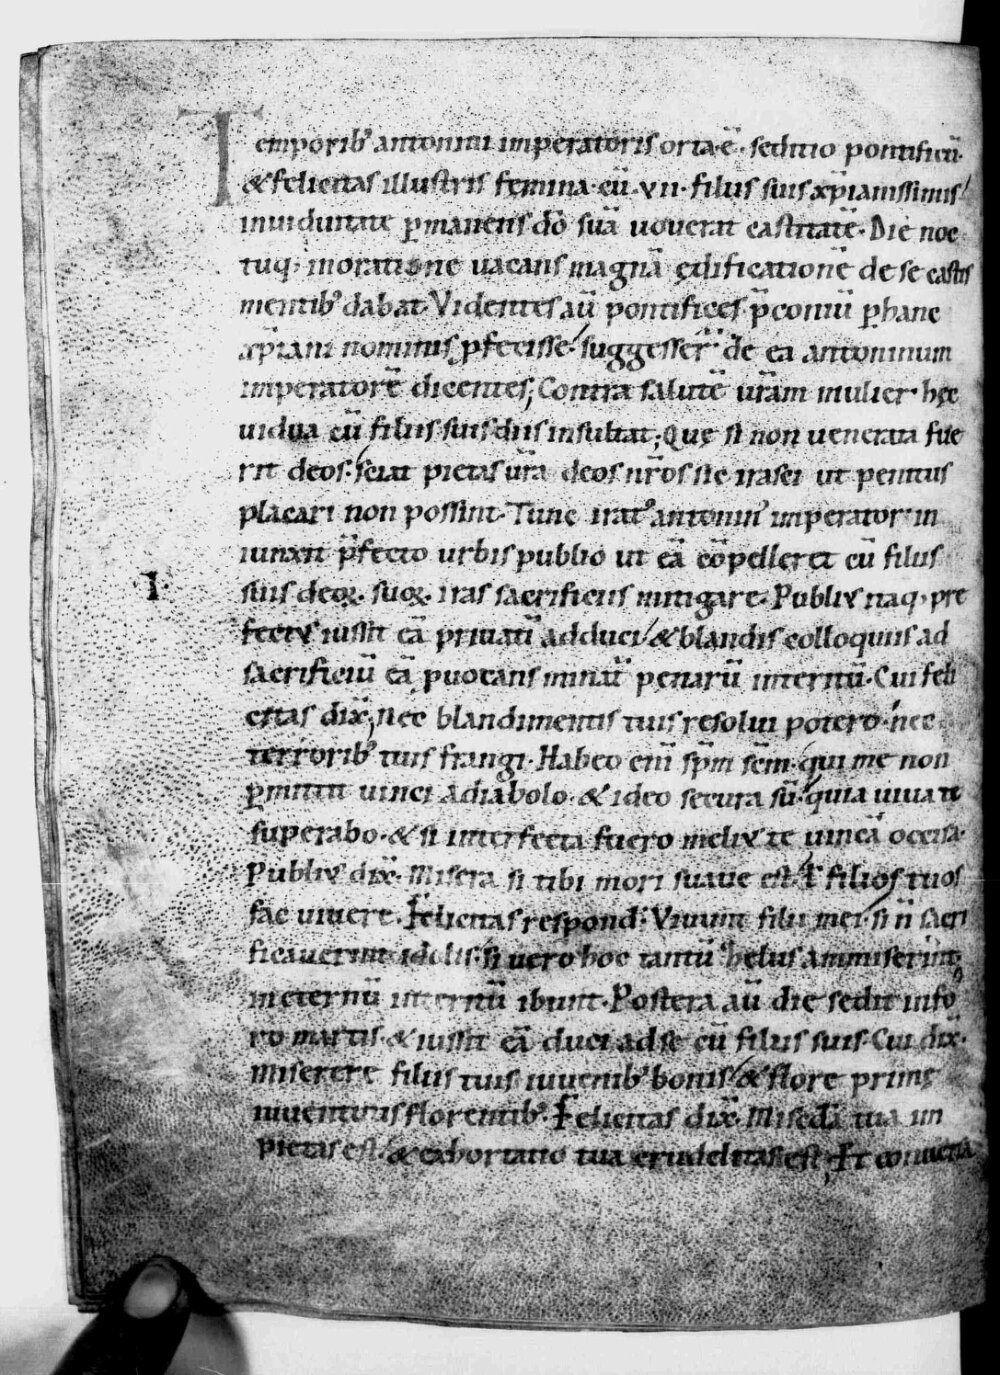 Temporib᾽ antonini imperatoris orta ē᷃ · seditio pontificū ·
& felicitas illustris femina · cū · vii · filiis suis xp̄ianissimis
inuiduitate p̄manens dō suā uouerat castitatē · Die noc
tuq; oratione uacans magnā ędificationē de se castis
mentib᾽ dabat · Videntes aū pontifices p̄coniū p̄ hanc
xp̄iani nominis p̄fecisse · suggesser̄ de ea antoninum
imperatorē dicentes; Contra salutē ur̄am mulier hęc
uidua cū filiis suis diis insultat; Quę si non uenerata fue
rit deos · sciat pietas ur̄a deos nr̄os sic irasci ut penitus
placari non possint · Tunc irat᾽ antonin᾽ imperator in
iunxit p̄fecto urbis publio ut eā cōpelleret cū filiis
suis deoꝝ suoꝝ iras sacrificiis mitigare · Publiꝰ itaq; pre
fectꝰ iussit eā priuatī adduci & blandis colloquiis ad
sacrificiū eā p̄uocans minat̄ penarū interitū · Cui feli
citas dix̄; nec blandimentis tuis resolui potero · nec
terrorib᾽ tuis frangi · Habeo enī sp̄m sc̄m · qui me non
p̄mittit uinci a diabolo · & ideo secura sū · quia uiua te
superabo · & si interfecta fuero meliꝰ te uincā occisa ·
Publiꝰ dix̄ · Misera si tibi mori suaue est · ł filios tuos
fac uiuere · Felicitas respond̄ · Viuunt filii mei · si n̄ sacri
ficauerint idolis · si uero hoc tantū scelus ammiserint ·
in eternū interitū ibunt · Postera aū die sedit in fo
ro martis · & iussit eā duci ad se cū filiis suis · Cui dix̄ ·
miserere filiis tuis iuuenib᾽ bonis & flore primę
iuuentutis florentib᾽ · Felicitas dix̄ · Misedia tua im
pietas est · & exhortatio tua crudelitas est · Et conuersa
I ·